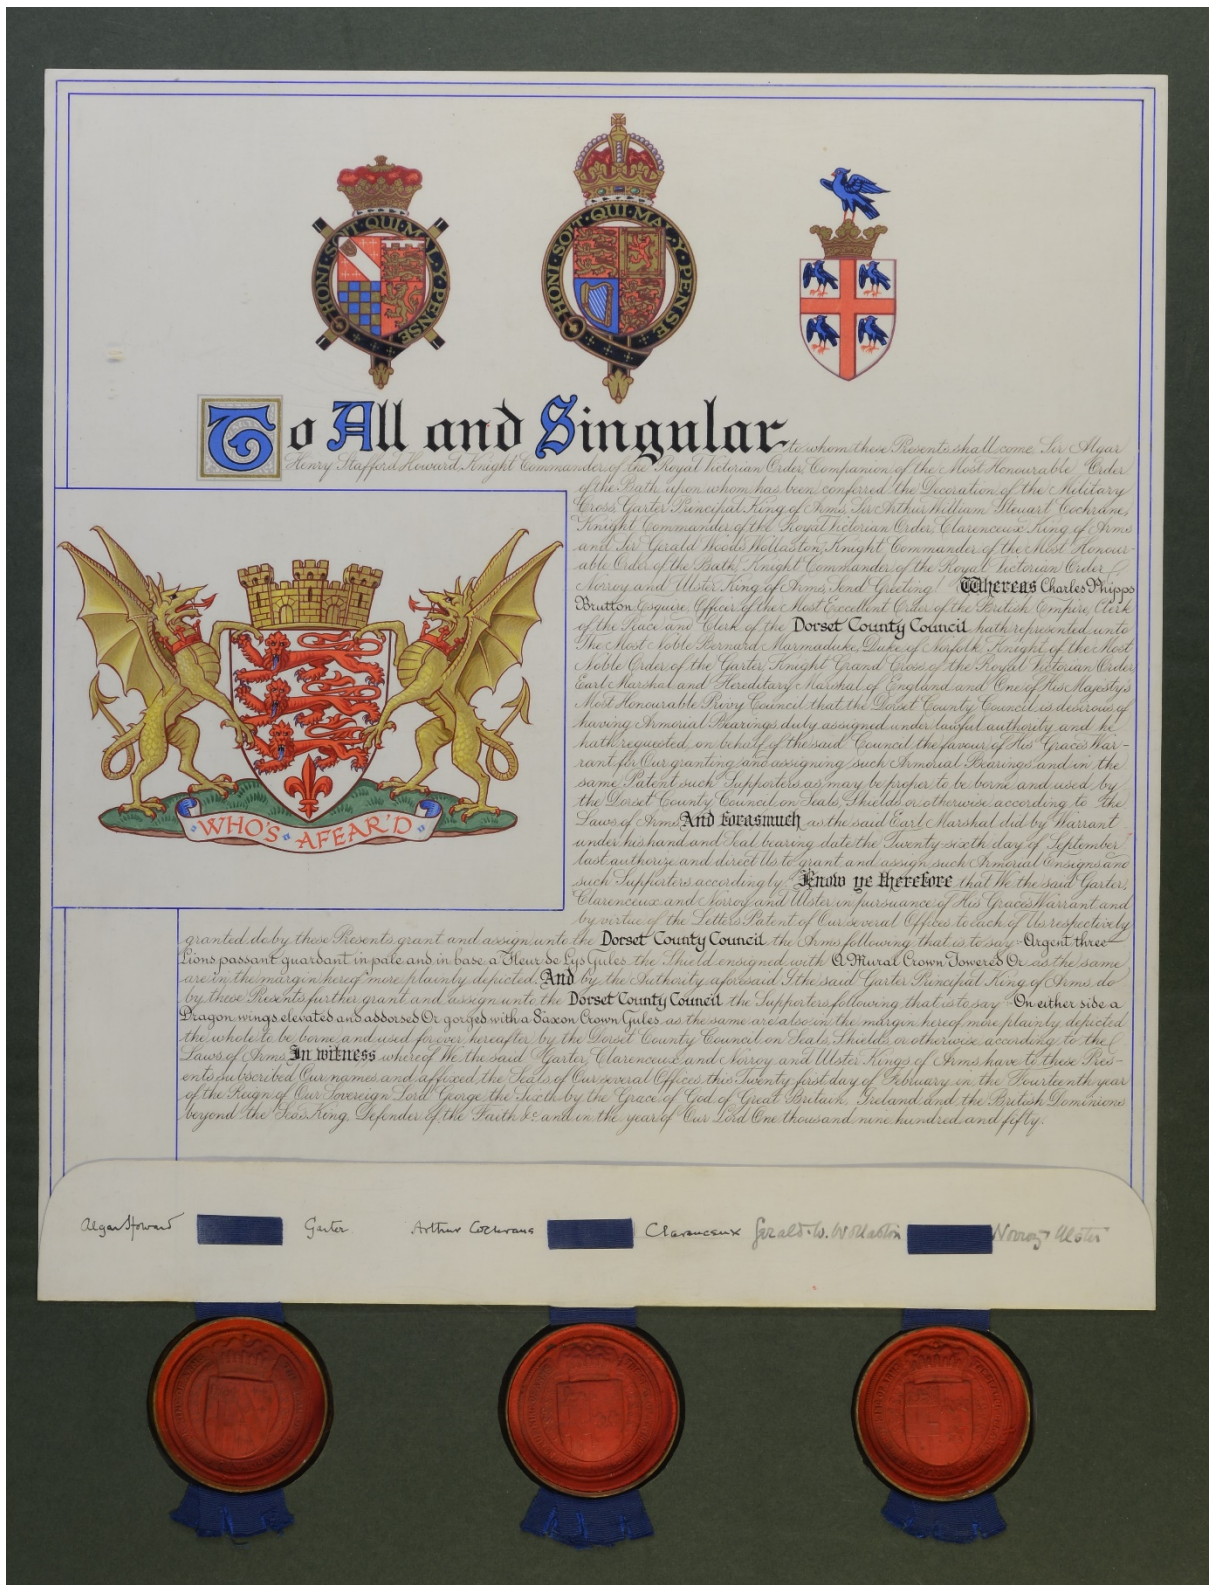 HONI·SOIT·QUI·MAL·Y·PENSE
HONI·SOIT·QUI·MAL·Y·PENSE
To All and Singular to whom these Presents shall come Sir Algar
Henry Stafford Howard, Knight Commander of the Royal Victorian Order, Companion of the Most Honourable Order
of the Bath upon whom has been conferred the Decoration of the Military
Cross, Garter Principal King of Arms, Sir Arthur William Steuart Cochrane,
Knight Commander of the Royal Victorian Order, Clarenceux King of Arms
and Sir Gerald Woods Wollaston, Knight Commander of the Most Honour-
able Order of the Bath, Knight Commander of the Royal Victorian Order,
Norroy and Ulster King of Arms, Send Greeting Whereas Charles Phipps
Brutton Esquire, Officer of the Most Excellent Order of the British Empire, Clerk
of the Peace and Clerk of the Dorset County Council hath represented unto
The Most Noble Bernard Marmaduke, Duke of Norfolk, Knight of the Most
Noble Order of the Garter, Knight Grand Cross of the Royal Victorian Order
Earl Marshal and Hereditary Marshal of England and One of His Majesty's
Most Honourable Privy Council that the Dorset County Council is desirous of
having Armorial Bearings duly assigned under lawful authority and he
hath requested on behalf of the said Council the favour of His Grace's War-
rant for Our granting and assigning such Armorial Bearings and in the
same Patent such Supporters as may be proper to be borne and used by
the Dorset County Council on Seals, Shields or otherwise according to the
Laws of Arms And forasmuch as the said Earl Marshal did by Warrant
under his hand and Seal bearing date the Twenty sixth day of September
last authorize and direct Us to grant and assign such Armorial Ensigns and
such Supporters accordingly Know ye therefore that We the said Garter,
Clarenceux and Norroy and Ulster in pursuance of His Grace's Warrant and
by virtue of the Letters Patent of Our several Offices to each of Us respectively
WHO'S AFEAR'D
granted do by these Presents grant and assign unto the Dorset County Council the Arms following that is to say Argent three
Lions passant guardant in pale and in base a Fleur de Lys Gules, the Shield ensigned with A Mural Crown Towered Or as the same
are in the margin hereof more plainly depicted. And by the Authority aforesaid I the said Garter Principal King of Arms do
by these Presents further grant and assign unto the Dorset County Council the Supporters following that is to say On either side a
Dragon wings elevated and addorsed Or gorged with a Saxon Crown Gules as the same are also in the margin hereof more plainly depicted
the whole to be borne and used for ever hereafter by the Dorset County Council on Seals, Shields or otherwise according to the
Laws of Arms In witness whereof We the said Garter, Clarenceux and Norroy and Ulster Kings of Arms have to these Pres-
ents subscribed Our names and affixed the Seals of Our several Offices this Twenty first day of February in the Fourteenth year
of the Reign of Our Sovereign Lord George the Sixth by the Grace of God of Great Britain, Ireland and the British Dominions
beyond the Seas King, Defender of the Faith &c. and in the year of Our Lord One thousand nine hundred and fifty.
Algar Howard Garter Arthur Cochrane Clarenceux Gerald W. Wollaston Norroy & Ulster